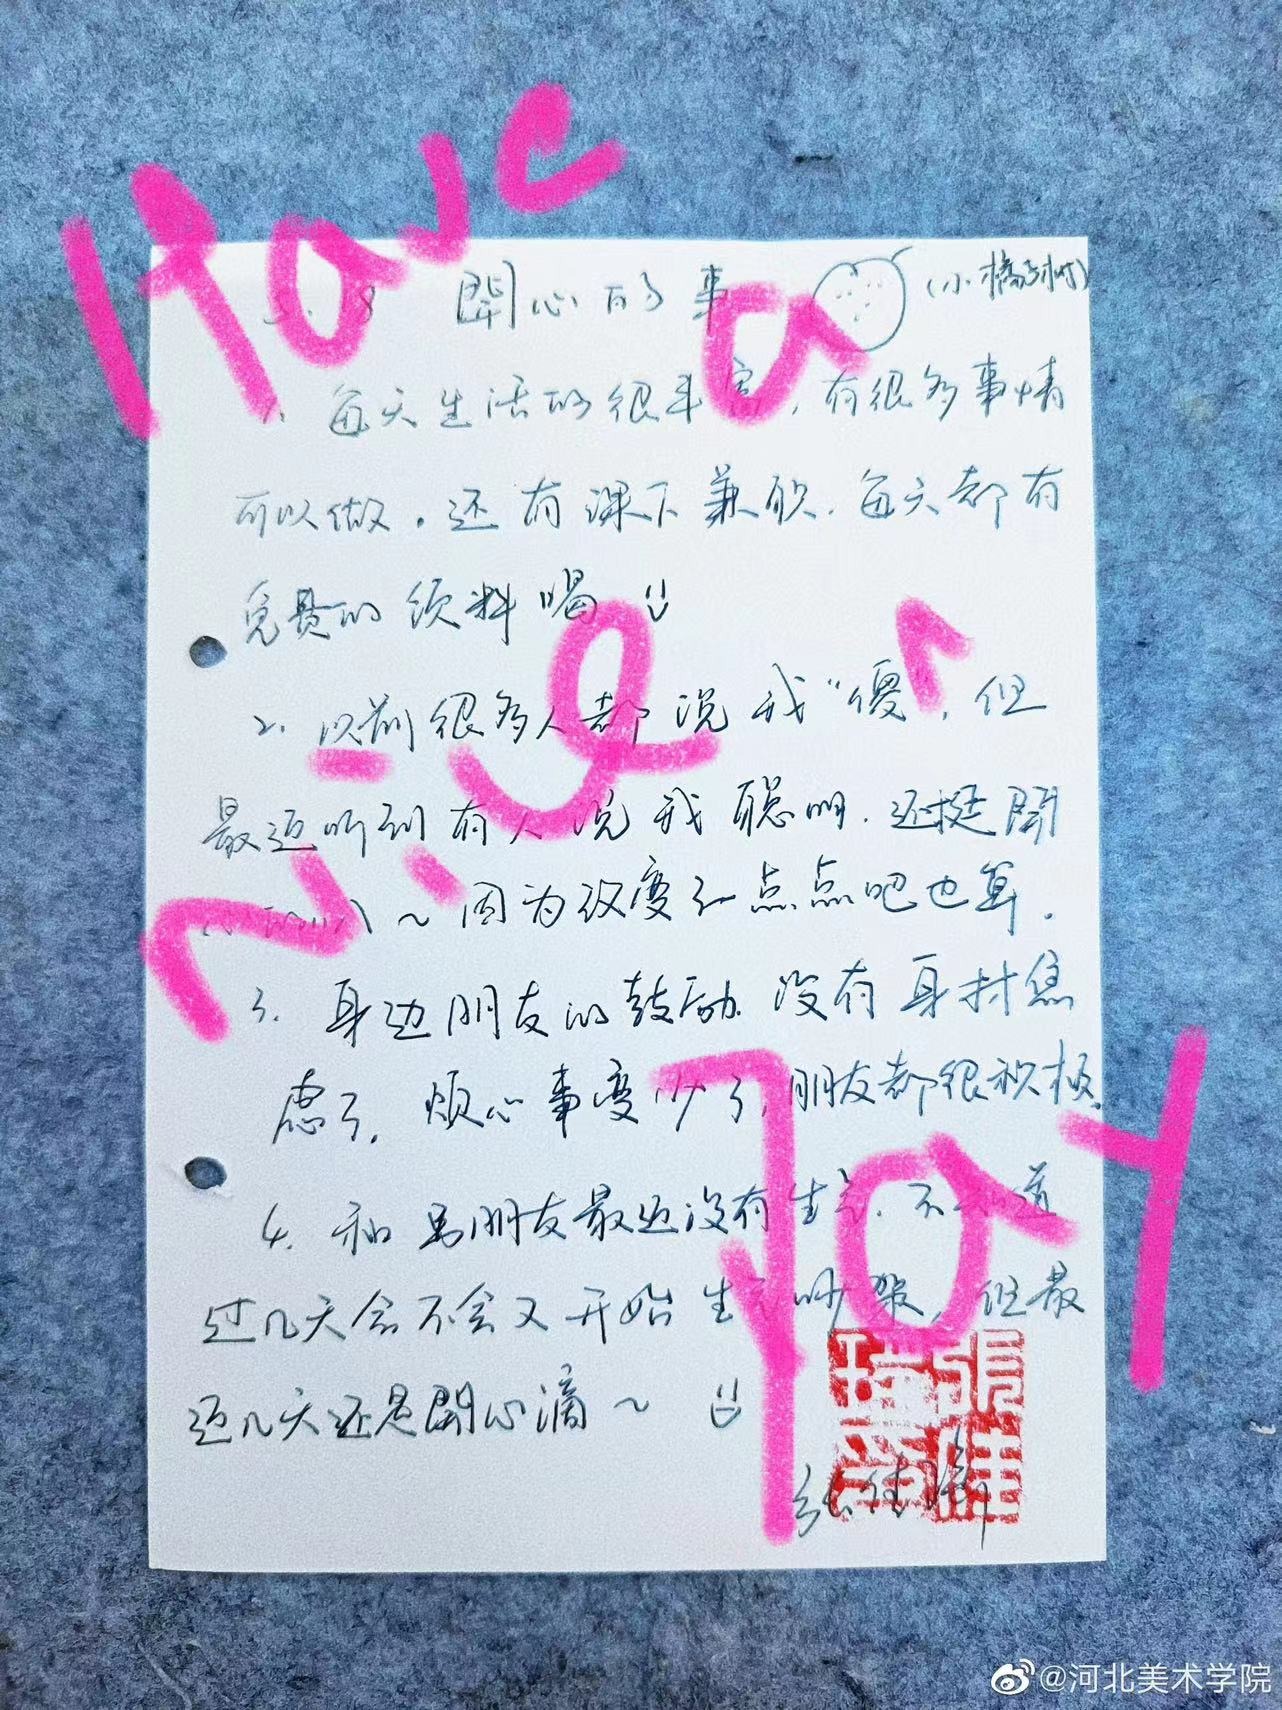 Have a
nice
day
5.8 開心的事 (小橘子树)
1. 每天生活的很丰富，有很多事情
可以做。还有课下兼职．每天都有
免费的饮料喝
2. 以前很多人都说我“傻”，但
最近听到有人说我聪明．还挺開
～因为改变了一点点吧也算．
3. 身边朋友的鼓励．没有身材焦
虑了．烦心事变少了，朋友都很积极．
4. 和男朋友最近没有生气．不知道
过几天会不会又开始生气吵架，但最
近几天还是開心滴～
張佳
@河北美术学院